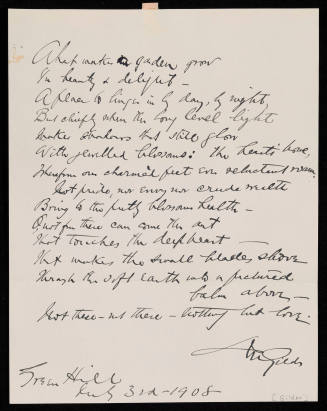 What makes a garden grow
In beauty & delight —
A place to linger in by day, by night,
But chiefly when the long level light
makes shadows that still glow
With jewelled blossoms: the heart's home,
Wherefrom our charmed feet are reluctant
Not pride, nor envy nor crude wealth
Bring to this pretty blossoms health —
for there can come this art
That touches the deep heart —
That makes the small blades shove
Through the soft earth into a pictured
balm above —
Not these — not these — nothing but love.
Gilder
Hill
July 3rd — 1908